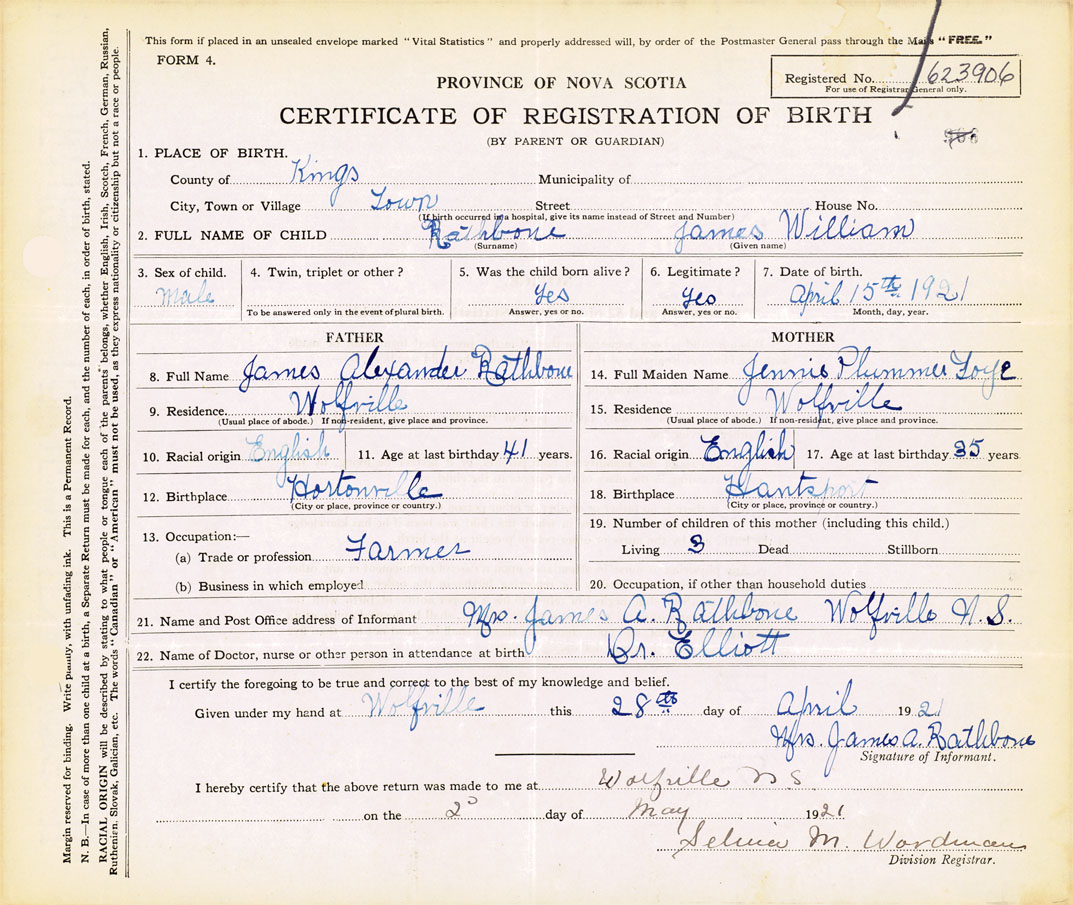 This form if placed in an unsealed envelope marked "Vital Statistics" and properly addressed will, by order of the Postmaster General pass through the Mails "FREE."
FORM 4.
PROVINCE OF NOVA SCOTIA
Registered No. 623906
For use of Registrar General only.
CERTIFICATE OF REGISTRATION OF BIRTH
(BY PARENT OR GUARDIAN)
1. PLACE OF BIRTH.
County of Kings Municipality of
City, Town or Village Town Street House No.
(If birth occurred in a hospital, give its name instead of Street and Number)
2. FULL NAME OF CHILD Rathbone James William
(Surname) (Given name)
3. Sex of child. 4. Twin, triplet or other? 5. Was the child born alive? 6. Legitimate? 7. Date of birth.
Male Yes Yes April 15th 1921
To be answered only in the event of plural birth. Answer, yes or no. Answer, yes or no. Month, day, year.
FATHER
8. Full Name James Alexander Rathbone
9. Residence. Wolfville
(Usual place of abode.) If non-resident, give place and province.
10. Racial origin English 11. Age at last birthday 41 years.
12. Birthplace Hortonville
(City or place, province or country.)
13. Occupation:—
(a) Trade or profession Farmer
(b) Business in which employed
MOTHER
14. Full Maiden Name Jennie Plummer Foye
15. Residence Wolfville
(Usual place of abode.) If non-resident, give place and province.
16. Racial origin English 17. Age at last birthday 35 years
18. Birthplace Hantsport
(City or place, province or country.)
19. Number of children of this mother (including this child.)
Living 3 Dead Stillborn
20. Occupation, if other than household duties
21. Name and Post Office address of Informant Mrs. James A. Rathbone Wolfville N.S.
22. Name of Doctor, nurse or other person in attendance at birth Dr. Elliott
I certify the foregoing to be true and correct to the best of my knowledge and belief.
Given under my hand at Wolfville this 28th day of April 1921
Mrs. James A. Rathbone
Signature of Informant.
I hereby certify that the above return was made to me at Wolfville N S
on the 2 day of May 1921
M. Wordman
Division Registrar.
Margin reserved for binding. Write plainly, with unfading ink. This is a Permanent Record.
N. B.—In case of more than one child at a birth, a Separate Return must be made for each, and the number of each, in order of birth, stated.
RACIAL ORIGIN will be described by stating to what people or tongue each of the parents belongs, whether English, Irish, Scotch, French, German, Russian,
Ruthenien, Slovak, Galician, etc. The words "Canadian" or "American" must not be used, as they express nationality or citizenship but not a race or people.